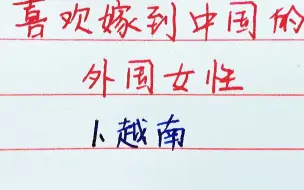 喜欢嫁到中国的
外国女性
1、越南